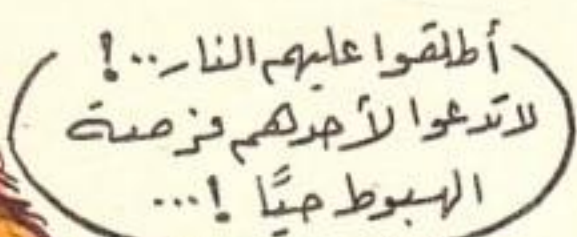 أطلقوا عليهم النار..!
لا تدعوا لأحدهم فرصة
الهبوط حيًّا !...